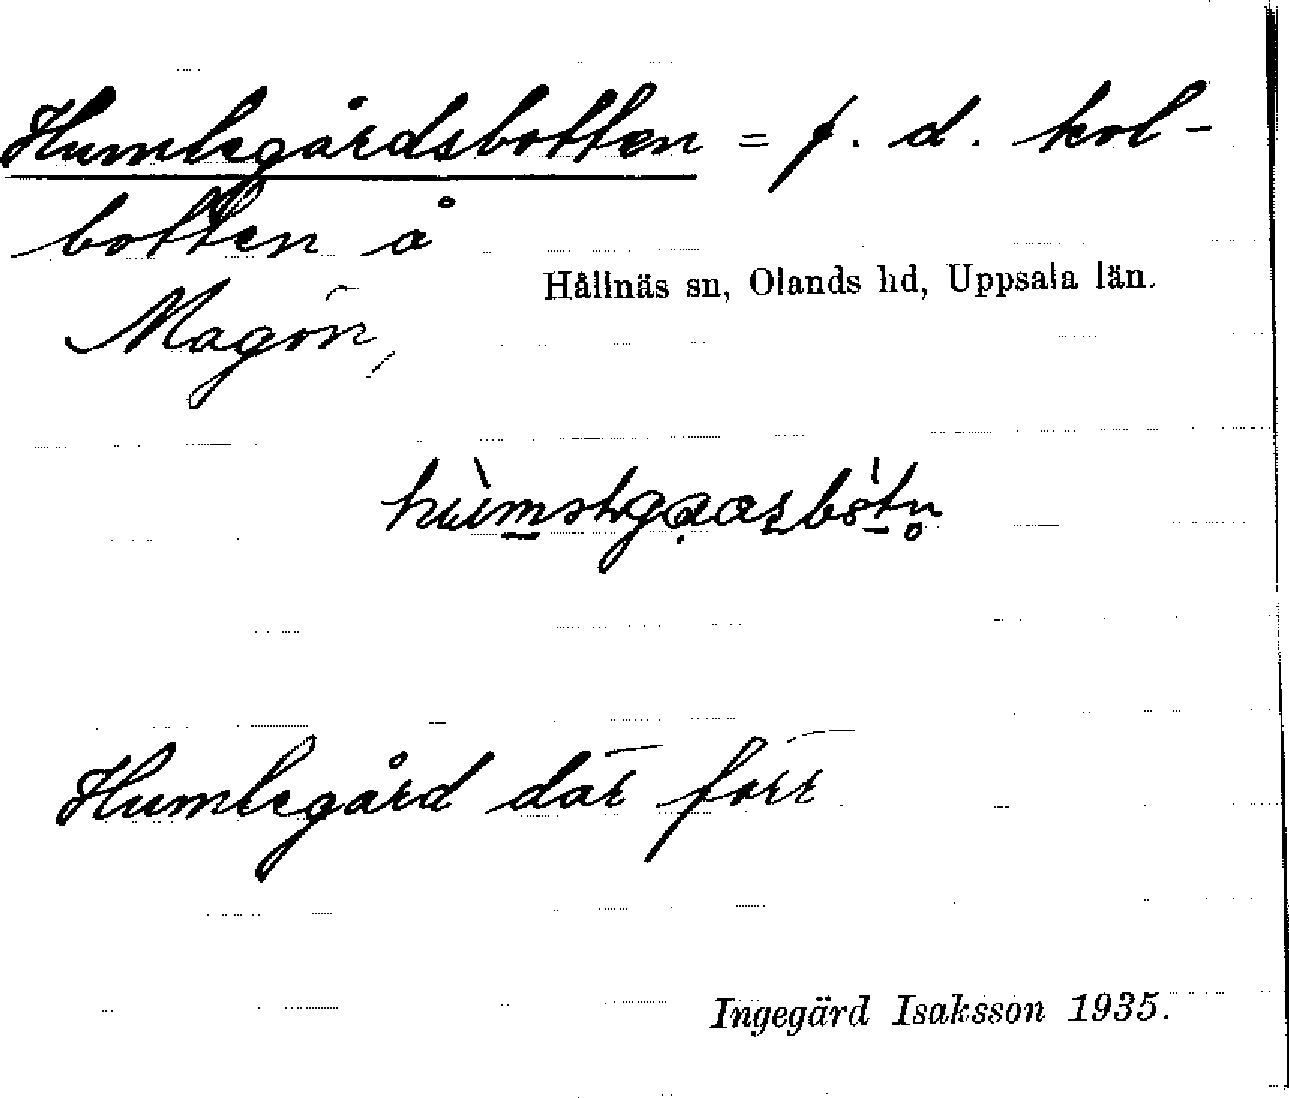 Humlegårdsbotten = f. d. kol-
botten å
Hållnäs sn, Olands hd, Uppsala län.
Magön,
Humlegård där förr
Ingegärd Isaksson 1935.